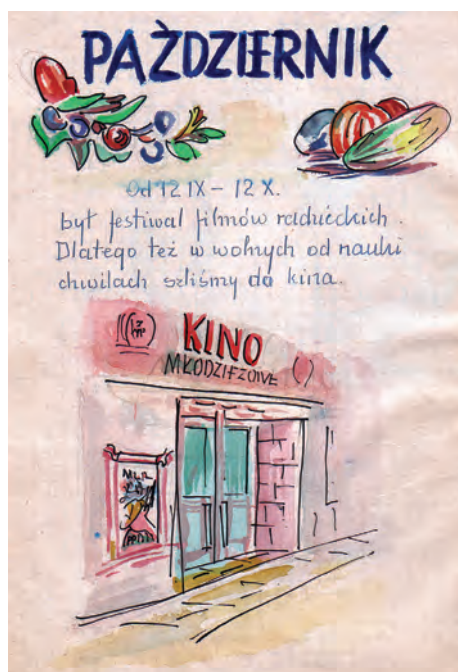 PAŹDZIERNIK
Od 12 IX – 12 X.
był festiwal filmów radzieckich.
Dlatego też w wolnych od nauki
chwilach szliśmy do kina.
KINO
MŁODZIEŻOWE